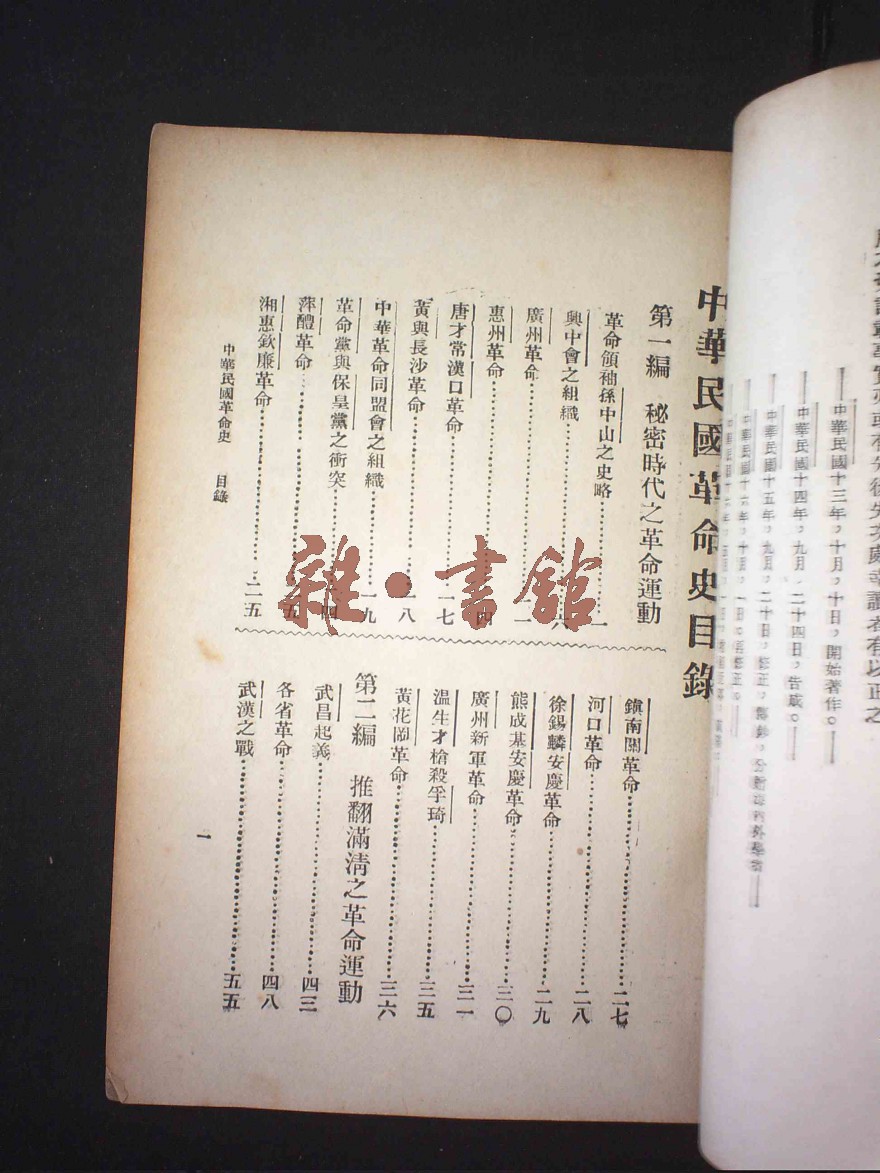 中華民國十三年，十月，十日，開始著作。
中華民國十四年，九月，二十四日，告成。
中華民國十五年，九月，二十日，
中華民國十六年，十月，一日。
中華民國革命史目錄
第一編　秘密時代之革命運動
革命領袖孫中山之史略……一
興中會之組織……六
廣州革命……
惠州革命……
唐才常漢口革命……一七
黃興長沙革命……一八
中華革命同盟會之組織……一九
革命黨與保皇黨之衝突……
萍醴革命……
湘惠欽廉革命……二五
鎮南關革命……二七
河口革命……二八
徐錫麟安慶革命……二九
熊成基安慶革命……三〇
廣州新軍革命……三一
温生才槍殺孚琦……三五
黃花岡革命……三六
第二編　推翻滿淸之革命運動
武昌起義……四三
各省革命……四八
武漢之戰……五五
中華民國革命史　目錄
一
雜・書館